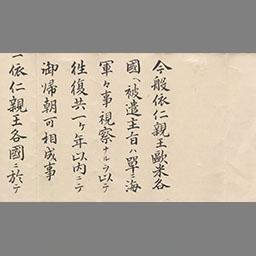 今般依仁親王歐米各
國ヘ被遣主旨ハ單ニ海
軍々事視察ナルヲ以テ
徃復共一ケ年以内ニテ
御帰朝可相成事
一依仁親王各國ニ於テ